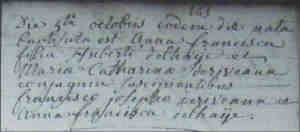 163
Die 5ta octobris eodem die nata
baptisata est Anna Francisca
filia Huberti delhaije et
Maria Catharina servieann
conjugum suscipientibus
Francisco josepho servieann et
Anna Francisca delhaije.